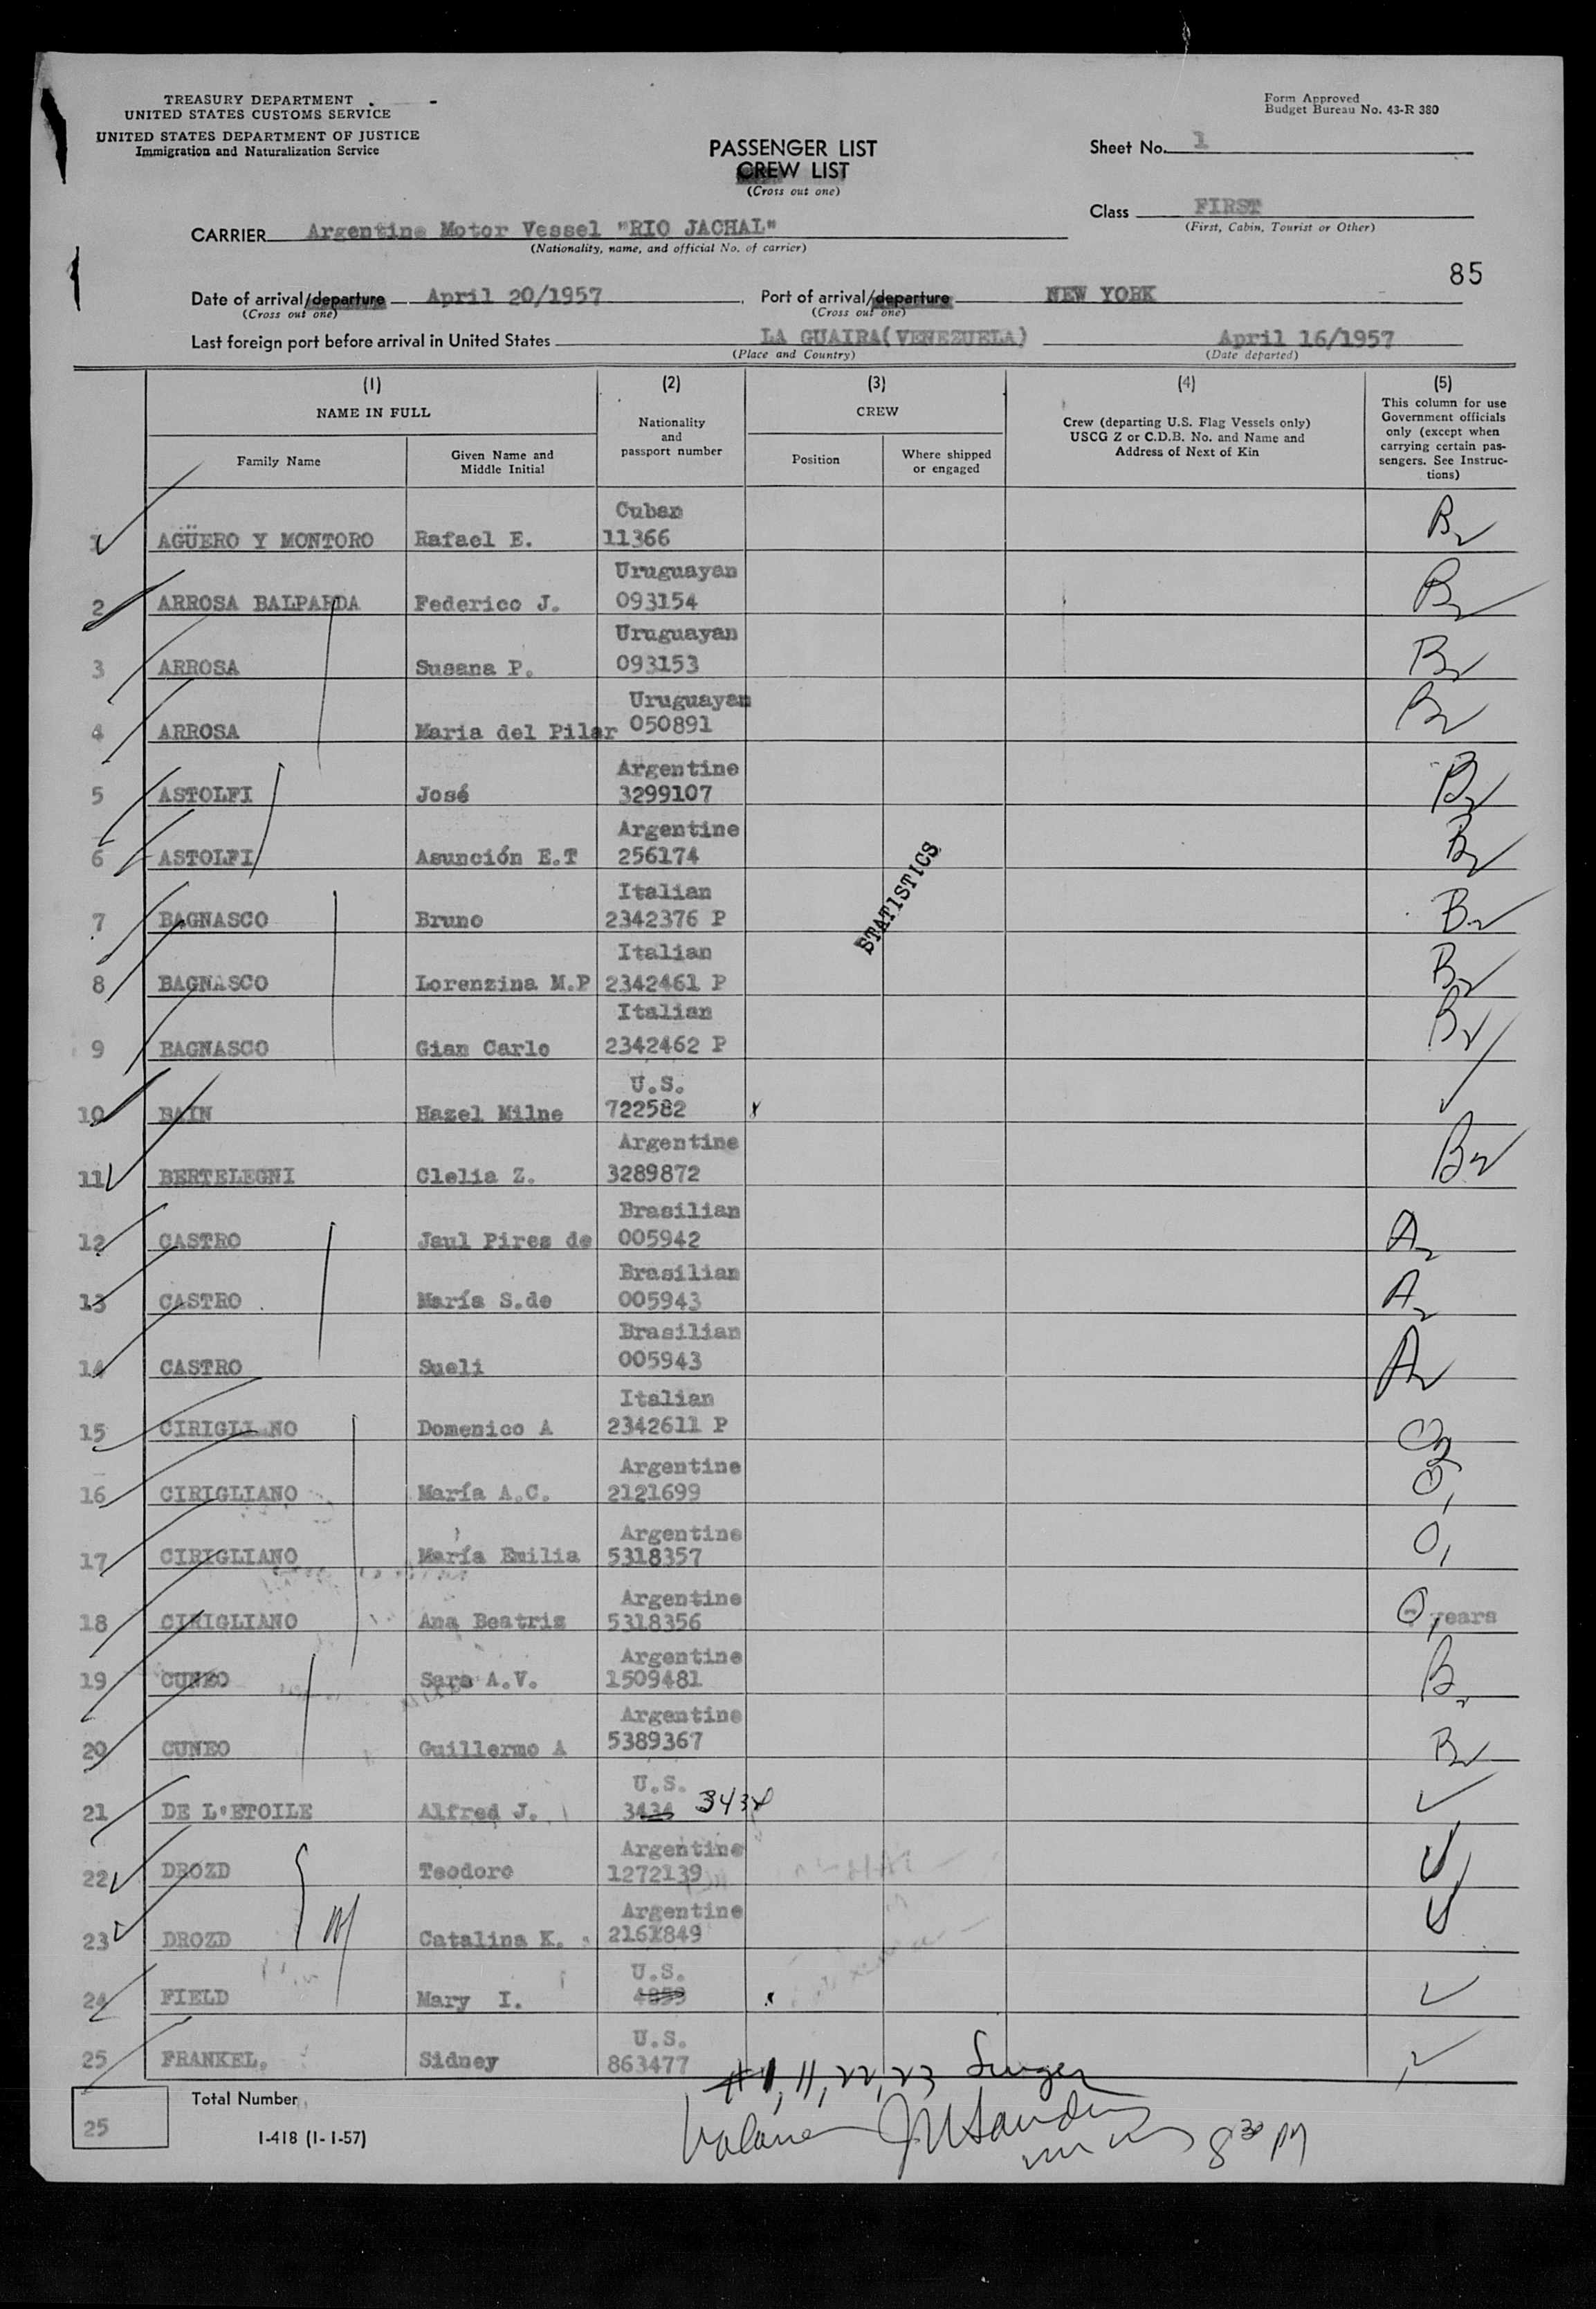 TREASURY DEPARTMENT
UNITED STATES CUSTOMS SERVICE
UNITED STATES DEPARTMENT OF JUSTICE
Immigration and Naturalization Service
Form Approved
Budget Bureau No. 43-R 380
PASSENGER LIST
CREW LIST
(Cross out one)
Sheet No. 1
Class FIRST
(First, Cabin, Tourist or Other)
CARRIER Argentine Motor Vessel "RIO JACHAL"
(Nationality, name, and official No. of carrier)
85
Date of arrival/departure April 20/1957, Port of arrival/departure NEW YORK
(Cross out one) (Cross out one)
Last foreign port before arrival in United States LA GUAIRA(VENEZUELA) April 16/1957
(Place and Country) (Date departed)
(1) (2) (3) (4) (5)
NAME IN FULL
Family Name
Given Name and Middle Initial
Nationality and passport number
CREW
Position
Where shipped or engaged
Crew (departing U.S. Flag Vessels only)
USCG Z or C.D.B. No. and Name and
Address of Next of Kin
This column for use
Government officials
only (except when
carrying certain pas-
sengers. See Instruc-
tions)
Cuban
1 AGÜERO Y MONTORO Rafael E. 11366 B2
Uruguayan
2 ARROSA BALPARDA Federico J. 093154 B2
Uruguayan
3 ARROSA Susana P. 093153 B2
Uruguayan
4 ARROSA Maria del Pilar 050891 B2
Argentine
5 ASTOLFI José 3299107 B2
Argentine
6 ASTOLFI Asunción E.T 256174 B2
Italian
7 BAGNASCO Bruno 2342376 P B2
Italian
8 BAGNASCO Lorenzina M.P 2342461 P B2
Italian
9 BAGNASCO Gian Carlo 2342462 P B2
STATISTICS
U.S.
10 BAIN Hazel Milne 722582 x
Argentine
11 BERTELEGNI Clelia Z. 3289872 B2
Brasilian
12 CASTRO Jaul Pires de 005942 A2
Brasilian
13 CASTRO María S.de 005943 A2
Brasilian
14 CASTRO Sueli 005943 A2
Italian
15 CIRIGLI NO Domenico A 2342611 P O2
Argentine
16 CIRIGLIANO María A.C. 2121699 O1
Argentine
17 CIRIGLIANO María Emilia 5318357 O1
Argentine
18 CIRIGLIANO Ana Beatris 5318356 O1 years
Argentine
19 CUNEO Sara A.V. 1509481 B2
Argentine
20 CUNEO Guillermo A 5389367 B2
U.S.
21 DE L'ETOILE Alfred J. 3434 3434
Argentine
22 DROZD Teodoro 1272139
Argentine
23 DROZD Catalina K. 2161849
U.S.
24 FIELD Mary I. 4853 x
U.S.
25 FRANKEL, Sidney 863477
#1, 11, 22, 23
Total Number
25
8 30 PM
I-418 (1-1-57)